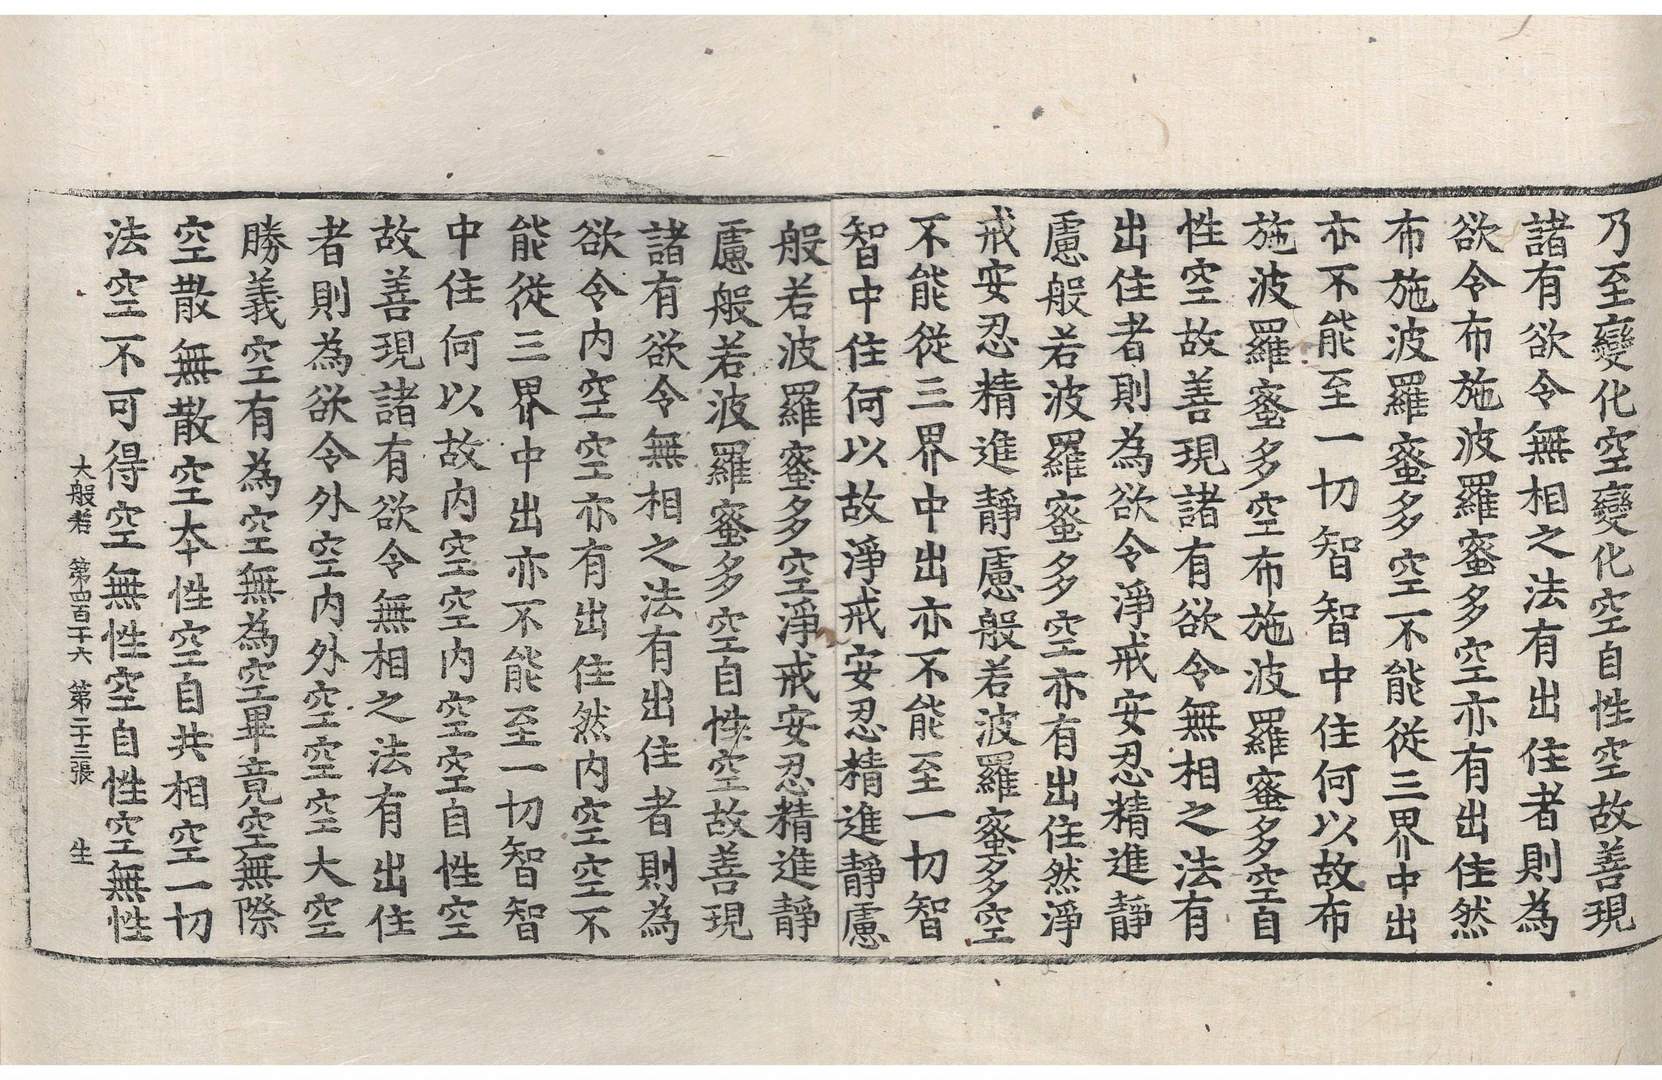 乃至變化空變化空自性空故善現
諸有欲令無相之法有出住者則為
欲令布施波羅蜜多空亦有出住然
布施波羅蜜多空不能從三界中出
亦不能至一切智智中住何以故布
施波羅蜜多空布施波羅蜜多空自
性空故善現諸有欲令無相之法有
出住者則為欲令淨戒安忍精進靜
慮般若波羅蜜多空亦有出住然淨
戒安忍精進靜慮般若波羅蜜多空
不能從三界中出亦不能至一切智
智中住何以故淨戒安忍精進靜慮
般若波羅蜜多空淨戒安忍精進靜
慮般若波羅蜜多空自性空故善現
諸有欲令無相之法有出住者則為
欲令內空空亦有出住然內空空不
能從三界中出亦不能至一切智智
中住何以故內空空內空空自性空
故善現諸有欲令無相之法有出住
者則為欲令外空內外空空空大空
勝義空有為空無為空畢竟空無際
空散無散空夲性空自共相空一切
法空不可得空無性空自性空無性
大般若 第四百十六 第二十三張 生